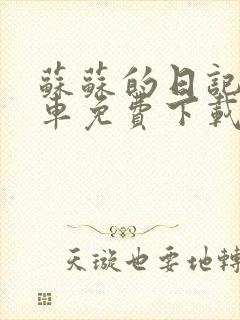 蘇蘇的日記
車免費下載
天璇也要地轉